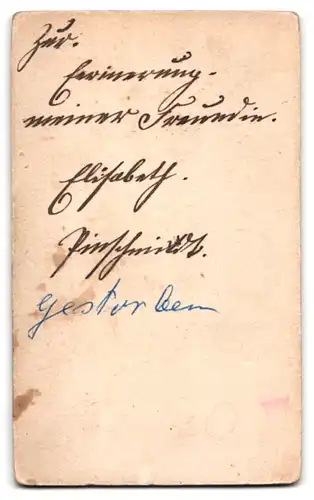 Zur.
Erinerung.
meiner Freundin.
Elisabeth.
Pinschmidt.
gestorben